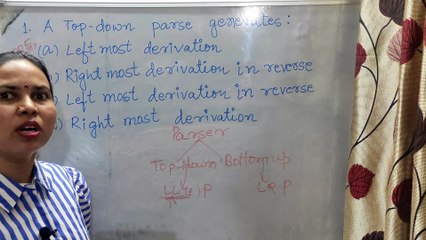 1. A Top-down parse generates:
(a) Left most derivation
) Right most derivation in reverse
) Left most derivation in reverse
) Right most derivation
Parser
Top-down Bottom up
LL(1) P LR P